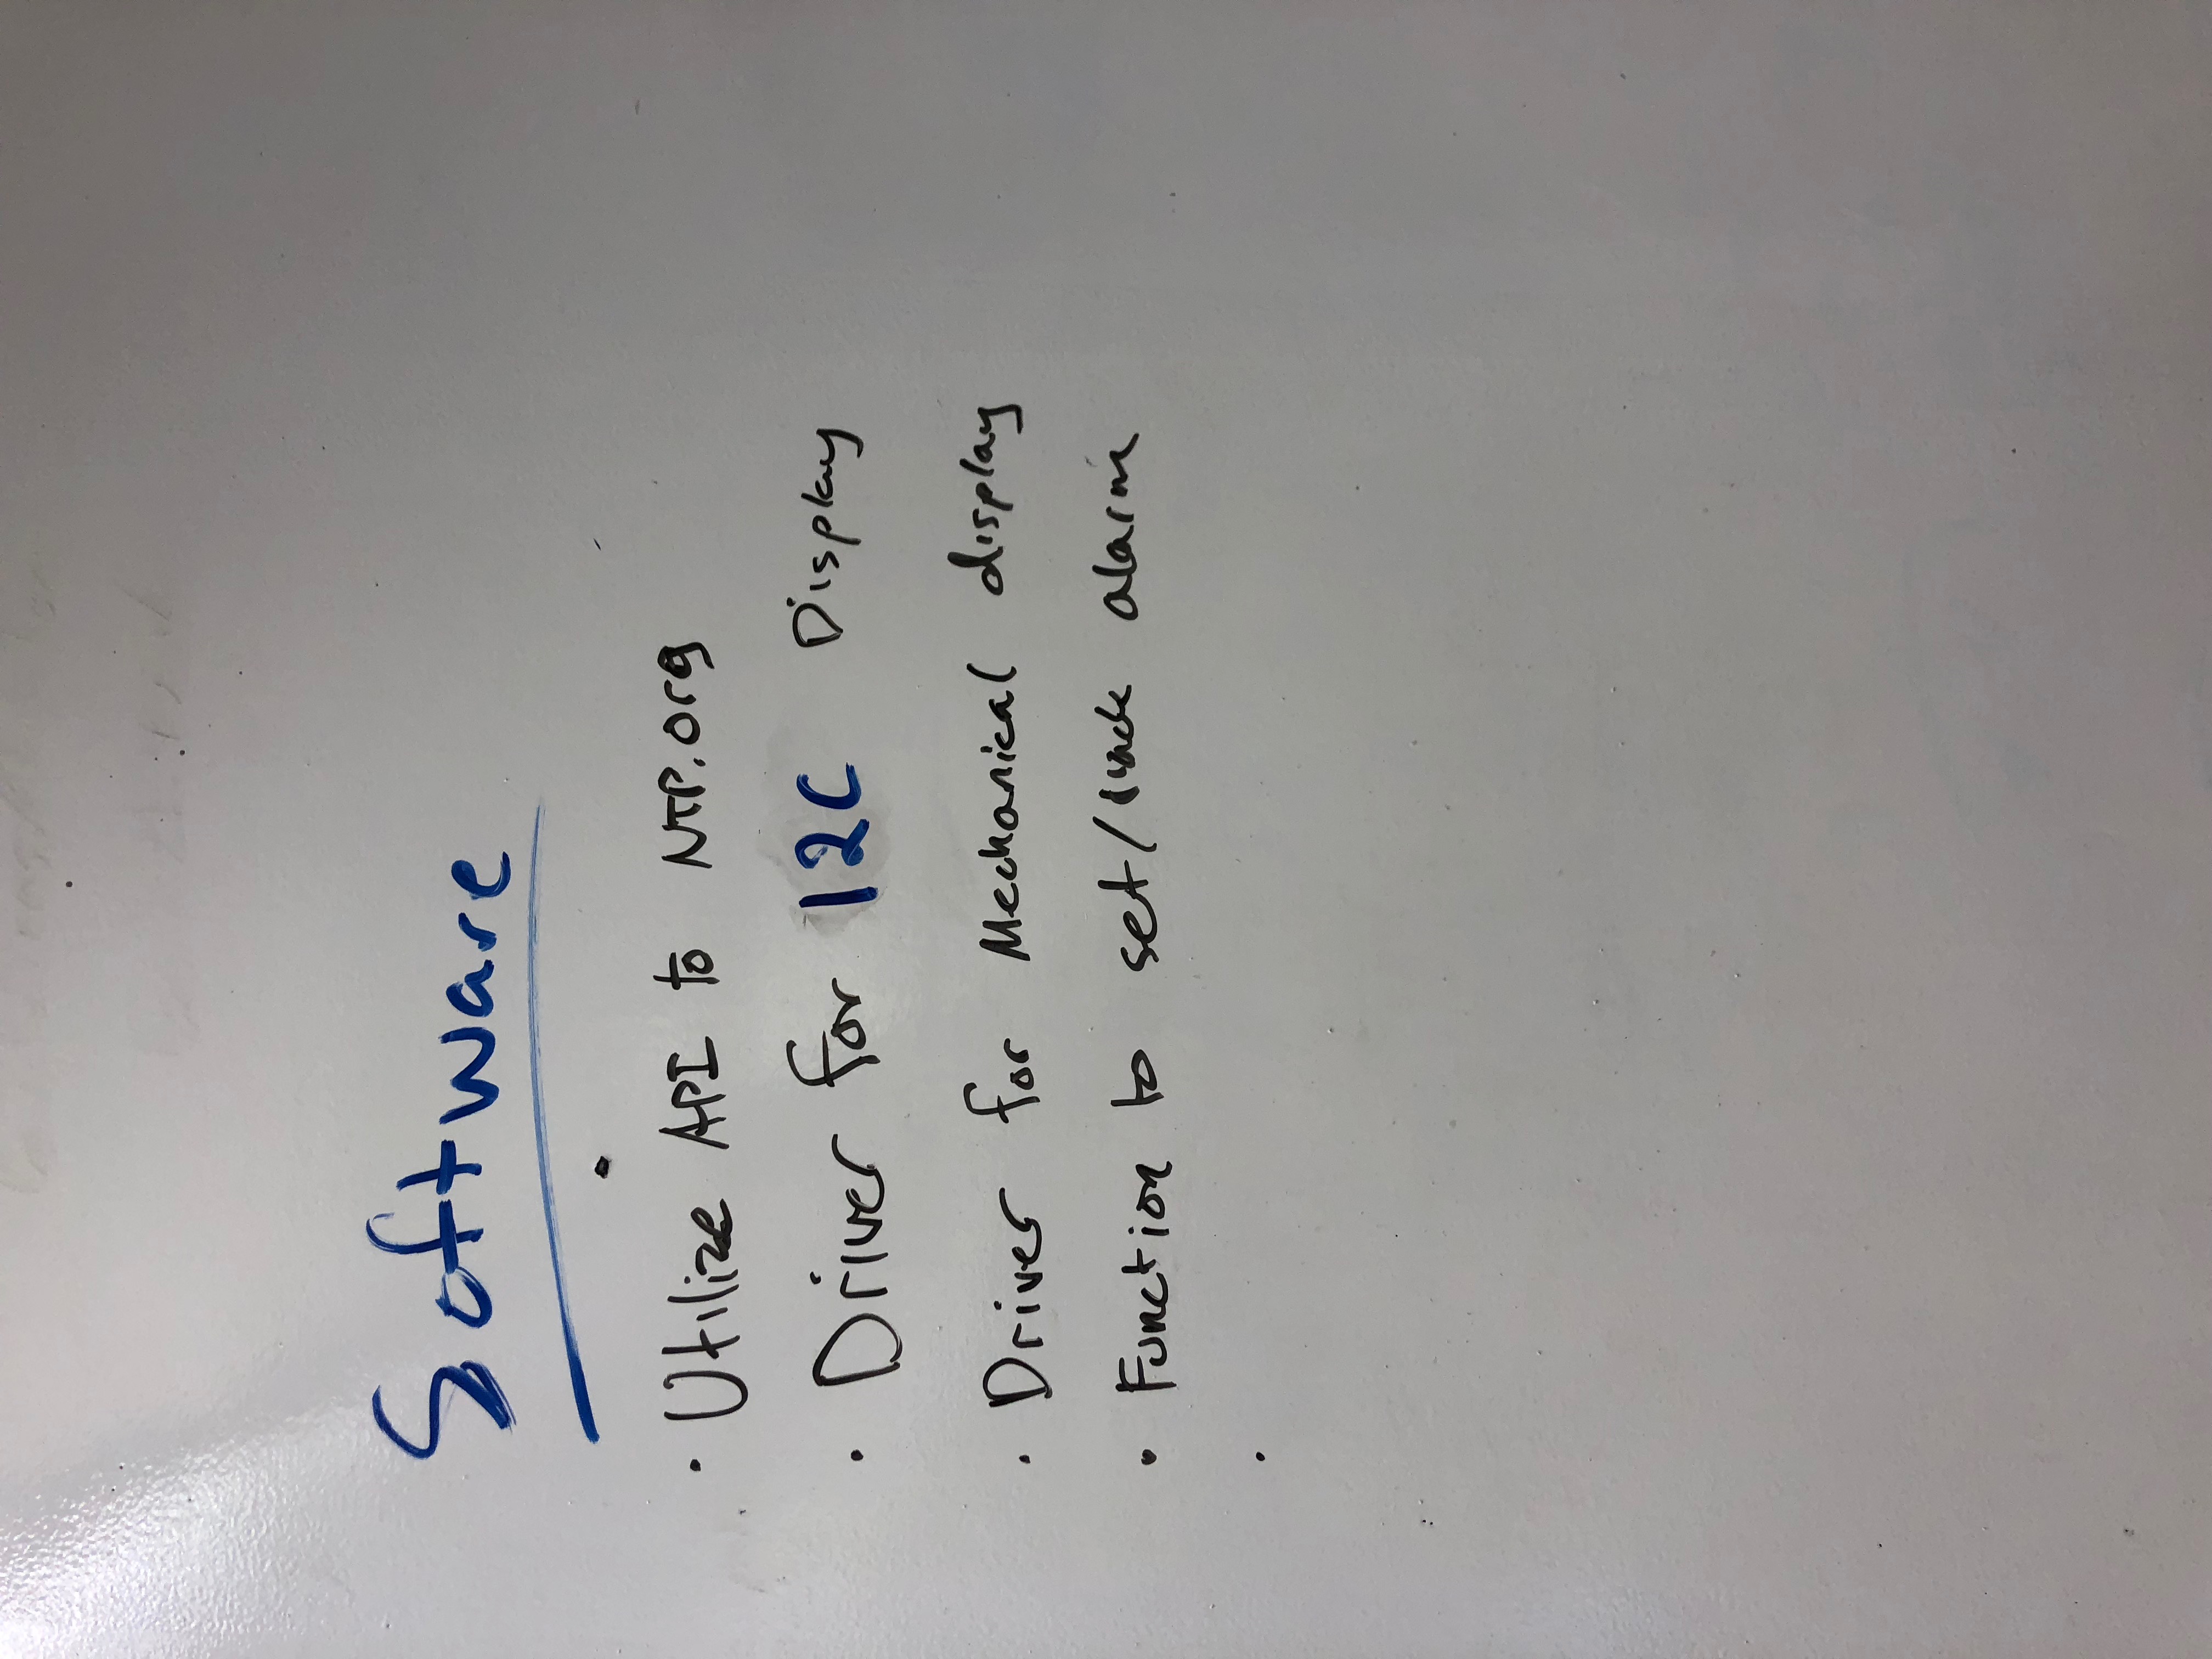 Software
· Utilize API to NTP.org
· Driver for I2C Display
· Driver for Mechanical display
· Function to set/track alarm
·